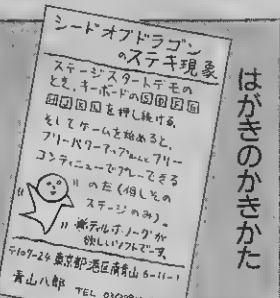 シードオブドラゴン
のステキ現象
ステージスタートデモの
とき、キーボードの
を押し続ける。
そしてゲームを始めると、
フリーパワーアップ フリー
コンティニューでプレーできる
のだ(但しその
ステージのみ)。
が
欲しいソフトでーす。
〒107-24 東京都港区南青山6-11-1
青山八郎 TEL
はがきのかきかた